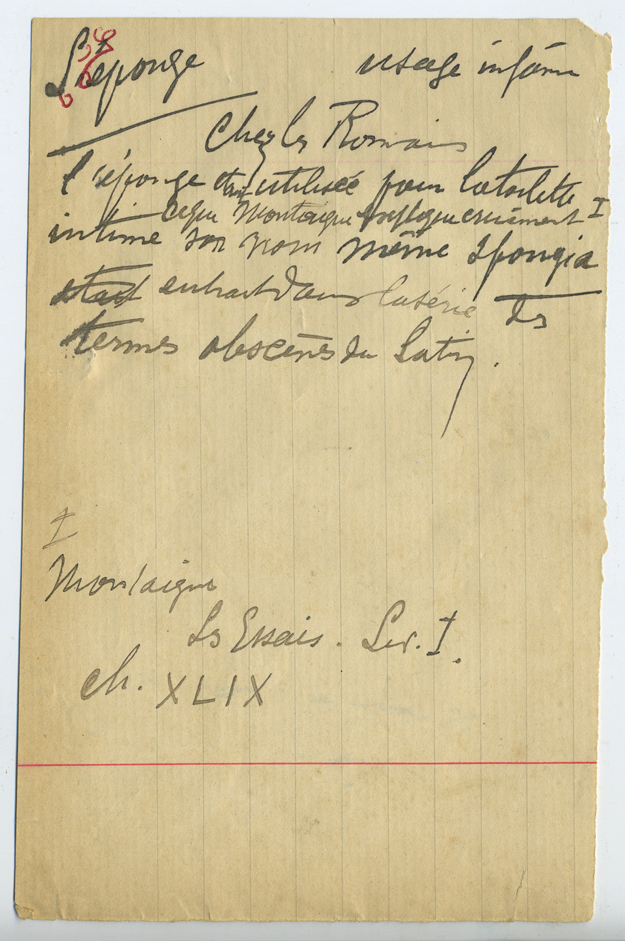 L'éponge usage infâme
Chez les Romains
l'éponge était utilisée pour la toilette
ce que Montaigne crûment I
intime son nom même spongia
était entrait dans la série des
termes obscènes du Latin.
I
Montaigne
Les Essais. Liv. I.
ch. XLIX